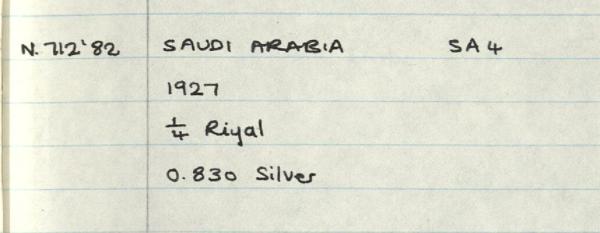 N.712'82 SAUDI ARABIA SA4
1927
1/4 Riyal
0.830 Silver